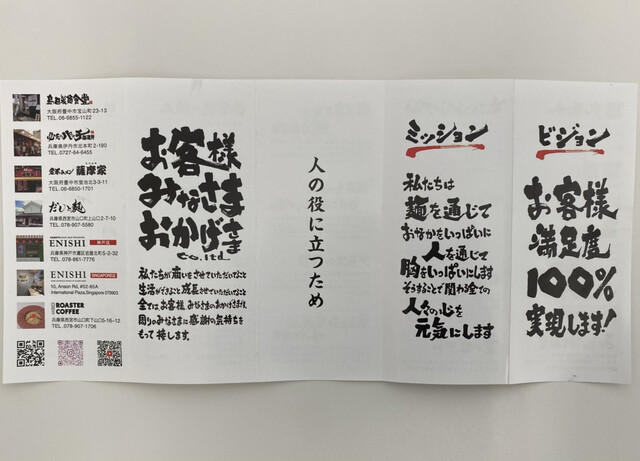 大阪府豊中市宝山町23-13
TEL.06-6855-1122
兵庫県伊丹市北本町2-190
TEL.0727-64-6455
薩摩家
大阪府豊中市蛍池北3-3-11
TEL.06-6850-1701
だしと麺
兵庫県西宮市山口町上山口2-7-10
TEL.078-907-5580
ENISHI 神戸店
兵庫県神戸市灘区岩屋北町5-2-32
TEL.078-861-7776
ENISHI SINGAPORE店
10, Anson Rd, #02-85A
International Plaza,Singapore 079903
ROASTER
COFFEE
兵庫県西宮市山口町下山口5-16-12
TEL.078-907-1706
お客様
みなさま
おかげさま
co.ltd.
私たちが商いをさせていただいなこと
生活ができること 成長させていただいなこと
全てはお客様、みなさまのおかげさまです。
周りのみなさまに感謝の気持ちを
もって接します。
人の役に立つため
ミッション
私たちは
麺を通じて
おなかをいっぱいに
人を通じて
胸をいっぱいにします
そうすることで関わる全ての
人々の心を
元気にします
ビジョン
お客様
満足度
100%
実現します!